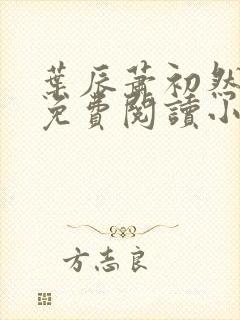 葉辰蕭初然
免費閱讀小
方志良